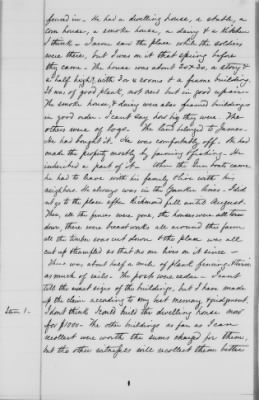 found in. He had a dwelling house, a stable, a
corn house, a smoke house, a dairy & a kitchen
I think. I never saw the place while the soldiers
were there, but I was on it that spring before
they came. The house was about 20 x 30, a story &
a half high, with rooms & a frame building.
It was of good plank, not new but in good repair.
The smoke house, & dairy were also framed buildings &
in good order. I can't say how big they were. The
others were of logs. The land belonged to James.
He had bought it. He was comfortably off. He had
made the property mostly by farming & fishing. He
inherited a part of it. When the war broke came
he had to leave with his family & live with his
neighbors. He always was in the Yankee lines. I did
not go to the place after Richmond fell until August.
Then, all the fences were gone, the houses were all torn
down, there were breastworks all around this farm
all the timber was cut down & the place was all
cut up & trampled so that no one lives on it since.
There was about half a mile of plank fencing & twice
as much of rails. The posts were cedar. I cannot
tell the exact sizes of the buildings, but I have made
up the claim according to my best memory & judgment.
Item 1. I don't think I could build the dwelling house now
for $1000. The other buildings as far as I can
recollect were worth the sums charged for them,
but the other witnesses will recollect them better